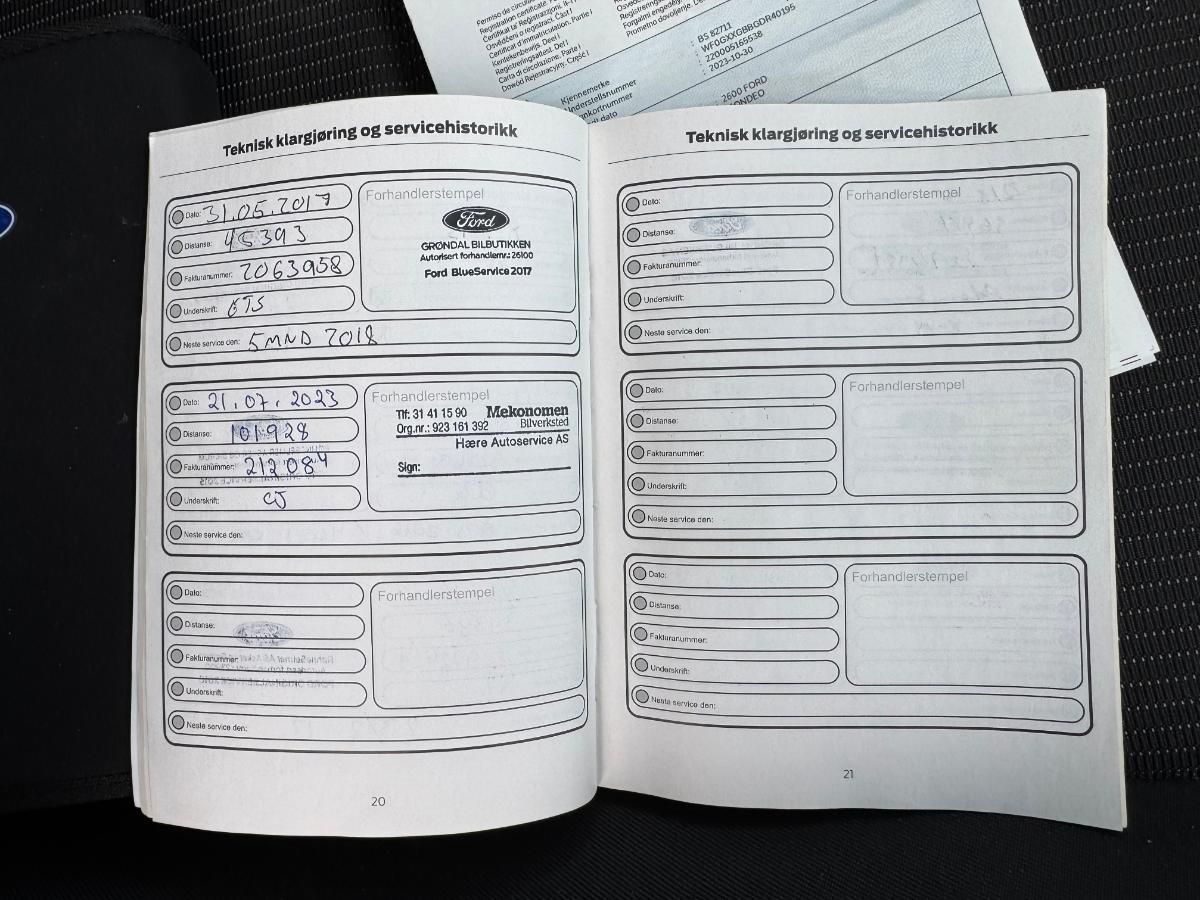 Permiso de circula
Registration certificate. P
Certificat ta' Reġistrazzjoni. Il-1
Osvědčení o registraci. Část I
Certificat d'immatriculation. Partie I
Kentekenbewijs. Deel I
Registreringsattest. Del I
Carta di circolazione. Parte I
Dowód Rejestracyjny. Część I
Prometno dovoljenje. De
Kjennemerke : BS 82711
Understellsnummer : WF0GXXGBBGDR40195
: 220005165538
dato : 2023-10-30
2600 FORD
ONDEO
Teknisk klargjøring og servicehistorikk
Dato: 31.05.2017
Distanse: 45393
Fakturanummer: 2063958
Underskrift:
Neste service den: 5 MND 2018
Forhandlerstempel
Ford
GRØNDAL BILBUTIKKEN
Autorisert forhandlernr.: 26100
Ford BlueService 2017
Dato: 21.07.2023
Distanse: 101928
Fakturanummer: 212084
Underskrift: CJ
Neste service den:
Forhandlerstempel
Tlf: 31 41 15 90 Mekonomen
Org.nr.: 923 161 392 Bilverksted
Hære Autoservice AS
Sign:
Dato:
Distanse:
Fakturanummer:
Underskrift:
Neste service den:
Forhandlerstempel
20
Teknisk klargjøring og servicehistorikk
Dato:
Distanse:
Fakturanummer:
Underskrift:
Neste service den:
Forhandlerstempel
Dato:
Distanse:
Fakturanummer:
Underskrift:
Neste service den:
Forhandlerstempel
Dato:
Distanse:
Fakturanummer:
Underskrift:
Neste service den:
Forhandlerstempel
21